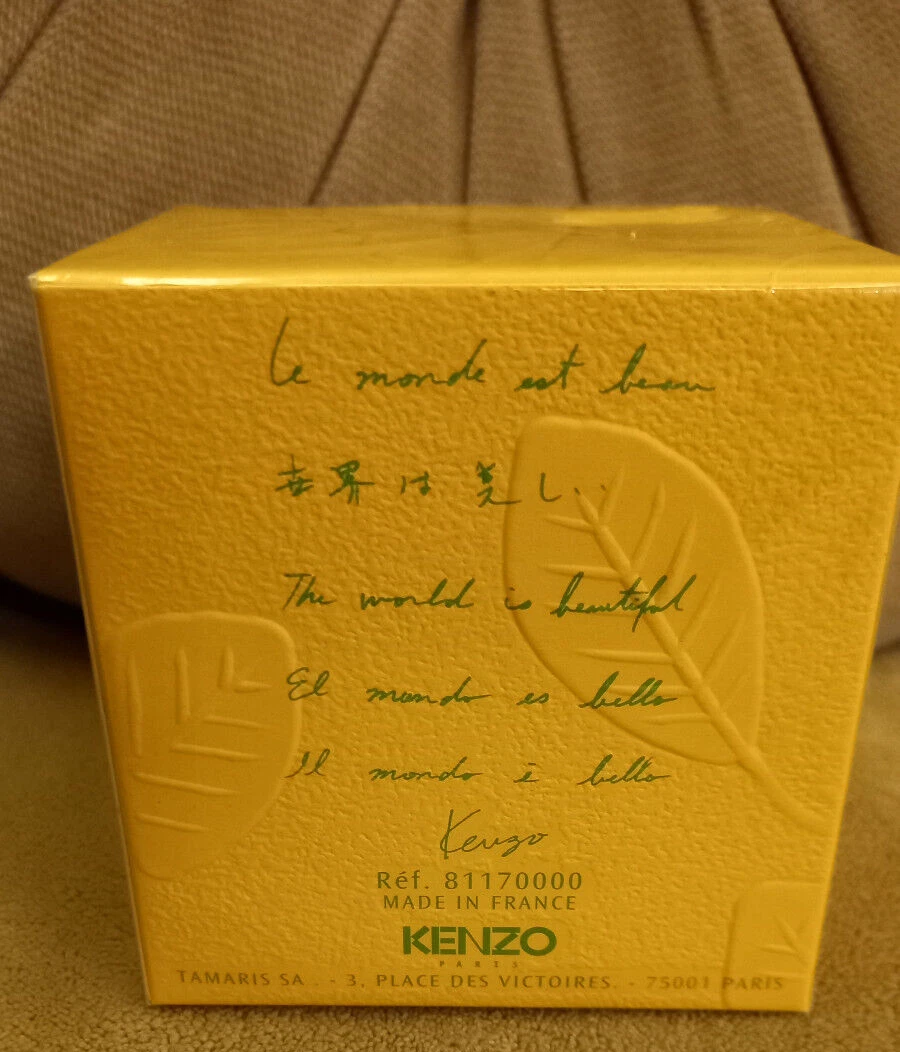 Le monde est beau
世界は美しい
The world is beautiful
El mundo es bello
Il mondo è bello
Kenzo
Réf. 81170000
MADE IN FRANCE
KENZO
PARIS
TAMARIS SA . - 3, PLACE DES VICTOIRES. - 75001 PARIS